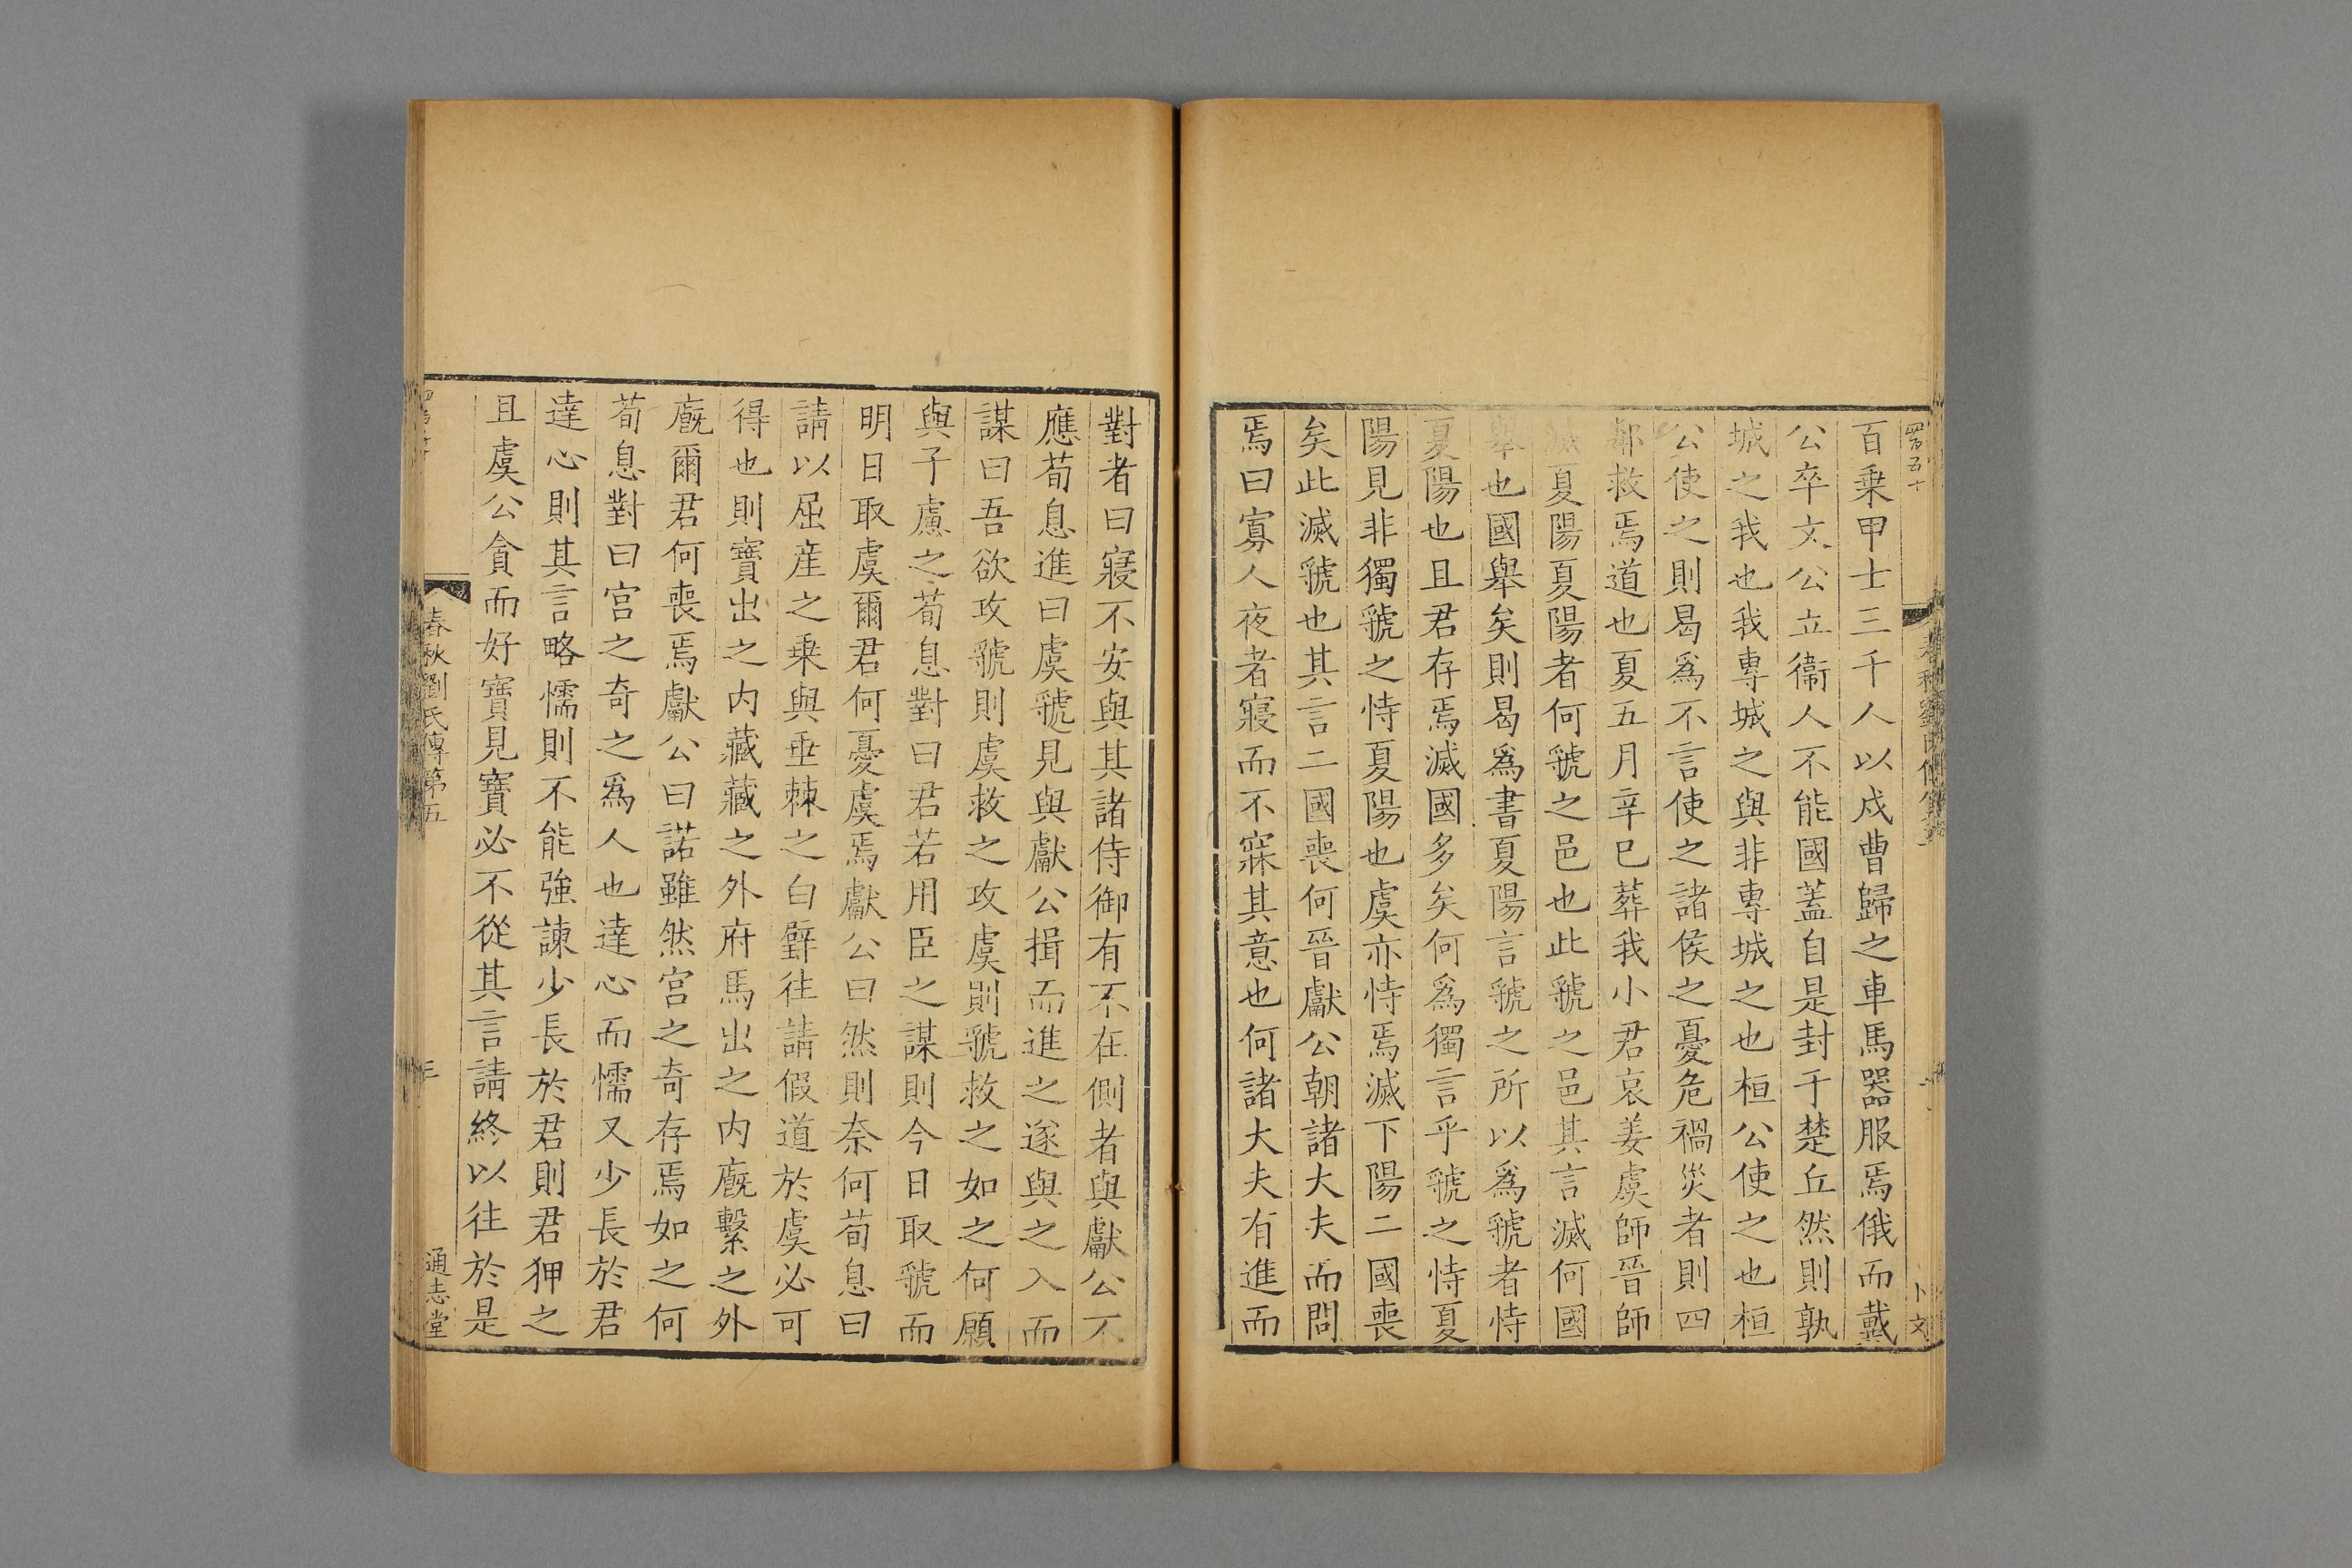 百乗甲士三千人以戍曹歸之車馬器服焉俄而戴
公卒文公立衞人不能國蓋自是封于楚丘然則孰
城之我也我專城之與非專城之也桓公使之也桓
公使之則曷爲不言使之諸侯之憂危禍災者則四
鄰救焉道也夏五月辛巳葬我小君哀姜虞師晉師
夏陽夏陽者何虢之邑也此虢之邑其言滅何國
舉也國舉矣則曷爲書夏陽言虢之所以爲虢者恃
夏陽也且君存焉滅國多矣何爲獨言乎虢之恃夏
陽見非獨虢之恃夏陽也虞亦恃焉滅下陽二國喪
矣此滅虢也其言二國喪何晉獻公朝諸大夫而問
焉曰寡人夜者寢而不寐其意也何諸大夫有進而
對者曰寢不安與其諸侍御有不在側者與獻公不
應荀息進曰虞虢見與獻公揖而進之遂與之入而
謀曰吾欲攻虢則虞救之攻虞則虢救之如之何願
與子慮之荀息對曰君若用臣之謀則今日取虢而
明日取虞爾君何憂虞焉獻公曰然則奈何荀息曰
請以屈産之乗與垂棘之白璧往請假道於虞必可
得也則寳出之内藏藏之外府馬出之内廐繫之外
廐爾君何喪焉獻公曰諾雖然宫之奇存焉如之何
荀息對曰宫之奇之爲人也達心而懦又少長於君
達心則其言略懦則不能強諫少長於君則君狎之
且虞公貪而好寳見寳必不從其言請終以往於是
春秋劉氏傳第五
通志堂